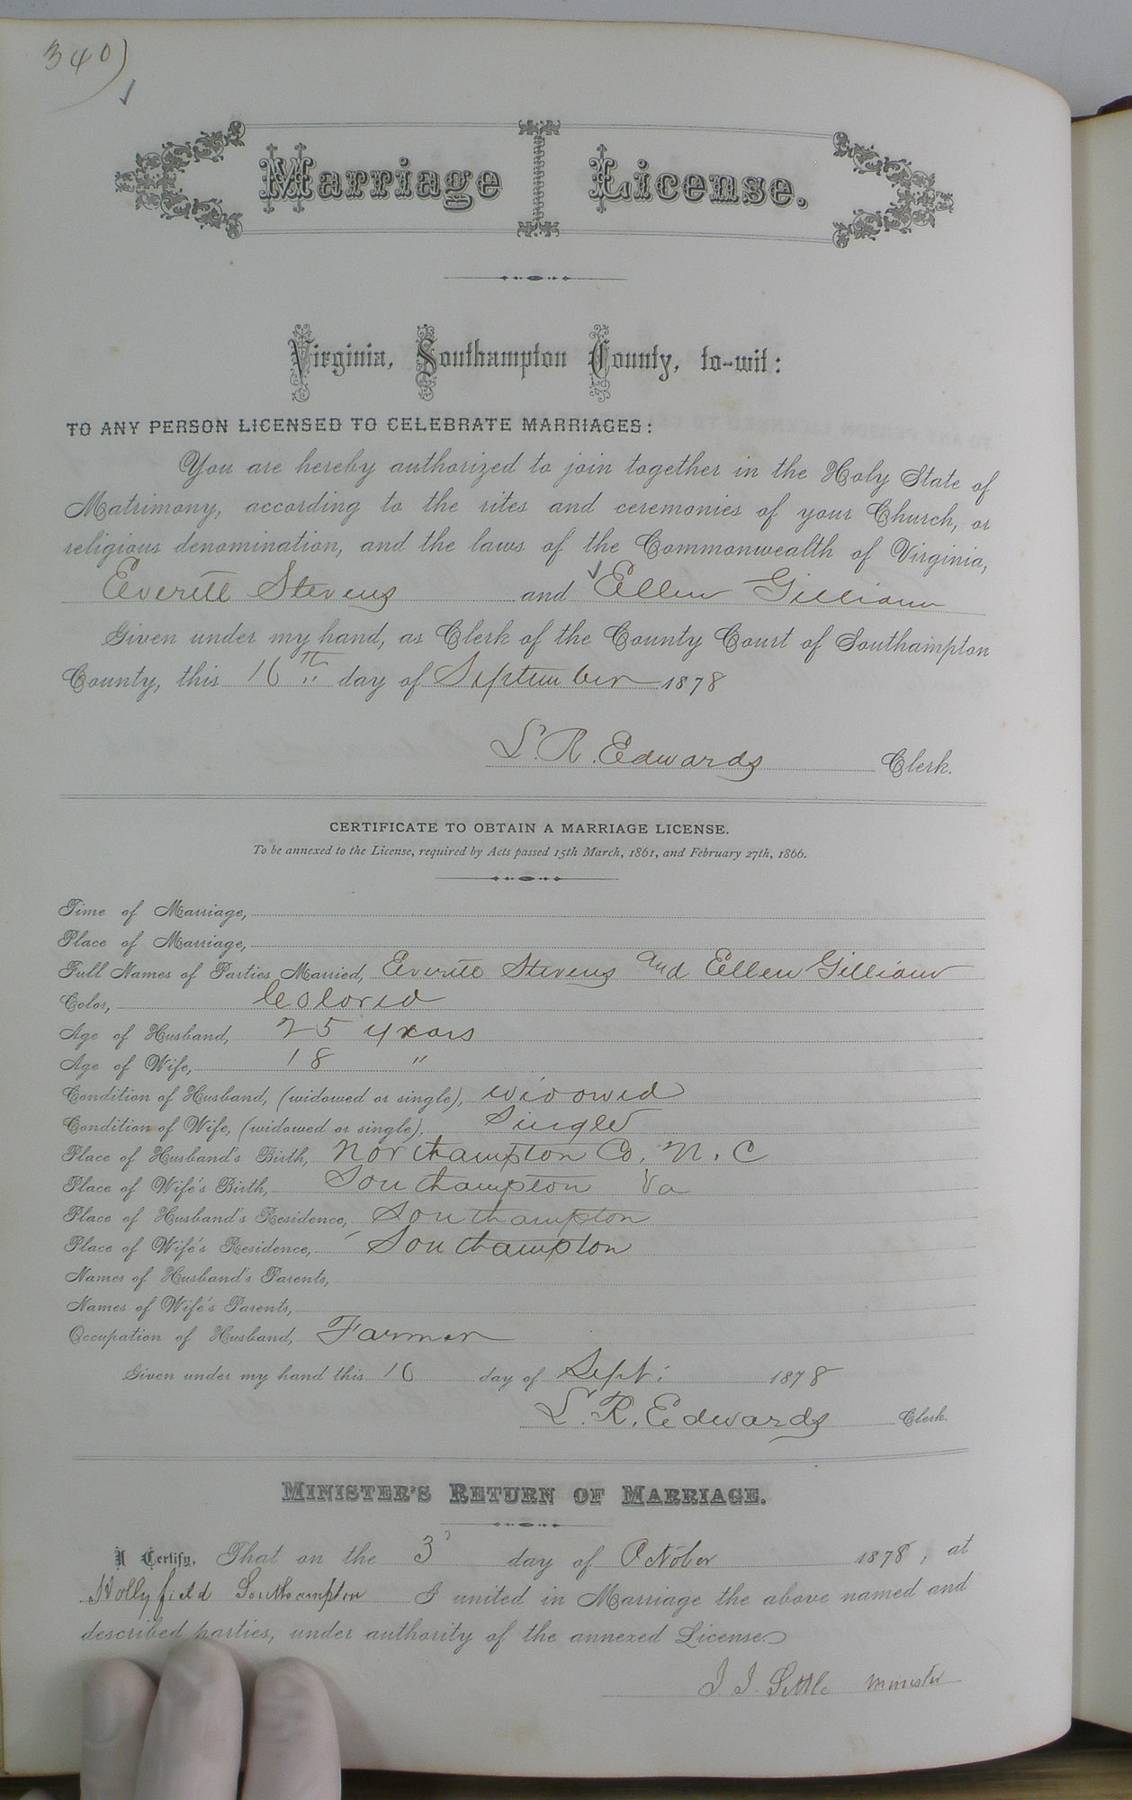 340)
Marriage License.
Virginia, Southampton County, to-wit:
TO ANY PERSON LICENSED TO CELEBRATE MARRIAGES:
You are hereby authorized to join together in the Holy State of
Matrimony, according to the rites and ceremonies of your Church, or
religious denomination, and the laws of the Commonwealth of Virginia,
Everitt Stevens and Ellen Gilliam
Given under my hand, as Clerk of the County Court of Southampton
County, this 16th day of September 1878
L. R. Edwards Clerk.
CERTIFICATE TO OBTAIN A MARRIAGE LICENSE.
To be annexed to the License, required by Acts passed 15th March, 1861, and February 27th, 1866.
Time of Marriage,
Place of Marriage,
Full Names of Parties Married, Everitt Stevens and Ellen Gilliam
Color, Colored
Age of Husband, 25 years
Age of Wife, 18 "
Condition of Husband, (widowed or single), widowed
Condition of Wife, (widowed or single), Single
Place of Husband's Birth, Northampton Co. N. C
Place of Wife's Birth, Southampton Va
Place of Husband's Residence, Southampton
Place of Wife's Residence, Southampton
Names of Husband's Parents,
Names of Wife's Parents,
Occupation of Husband, Farmer
Given under my hand this 16 day of Sept: 1878
L. R. Edwards Clerk.
MINISTER'S RETURN OF MARRIAGE.
I Certify, That on the 3d day of October 1878, at
Hollyfield Southampton I united in Marriage the above named and
described parties, under authority of the annexed License.
J. J. Settle Minister